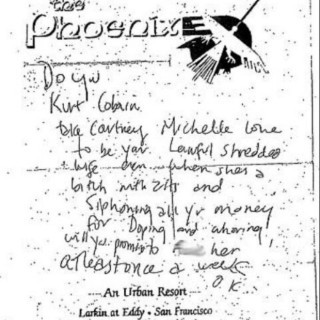 the
Phoenix
Do you
Kurt Cobain
take Cortney Michelle Love
to be your Lawful shredded
wife even when shes a
bitch with zits and
siphoning all yr money
for Doping and whoring
will you promise to her
atleast once a week
O.K.
An Urban Resort
Larkin at Eddy • San Francisco